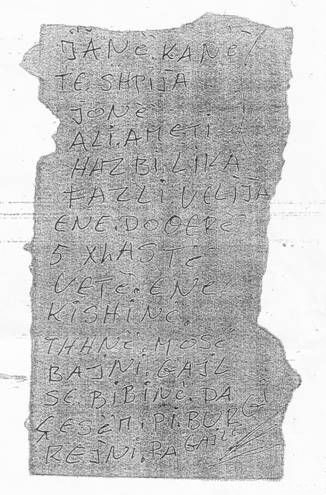 JANË.KANË
TE.SHPIJA
JONË
ALI.AMETI
HAZBI.LIKA
FAZLI VELIJA
ENE.DOQERË
5 XhASTË
VETË.ENE
KISHINË.
THHNI.MOSË
BAJNI.GAJL
SE.BIBINË.DA
ÇESËM.PI.BURG
REJNI.PA GAJLE